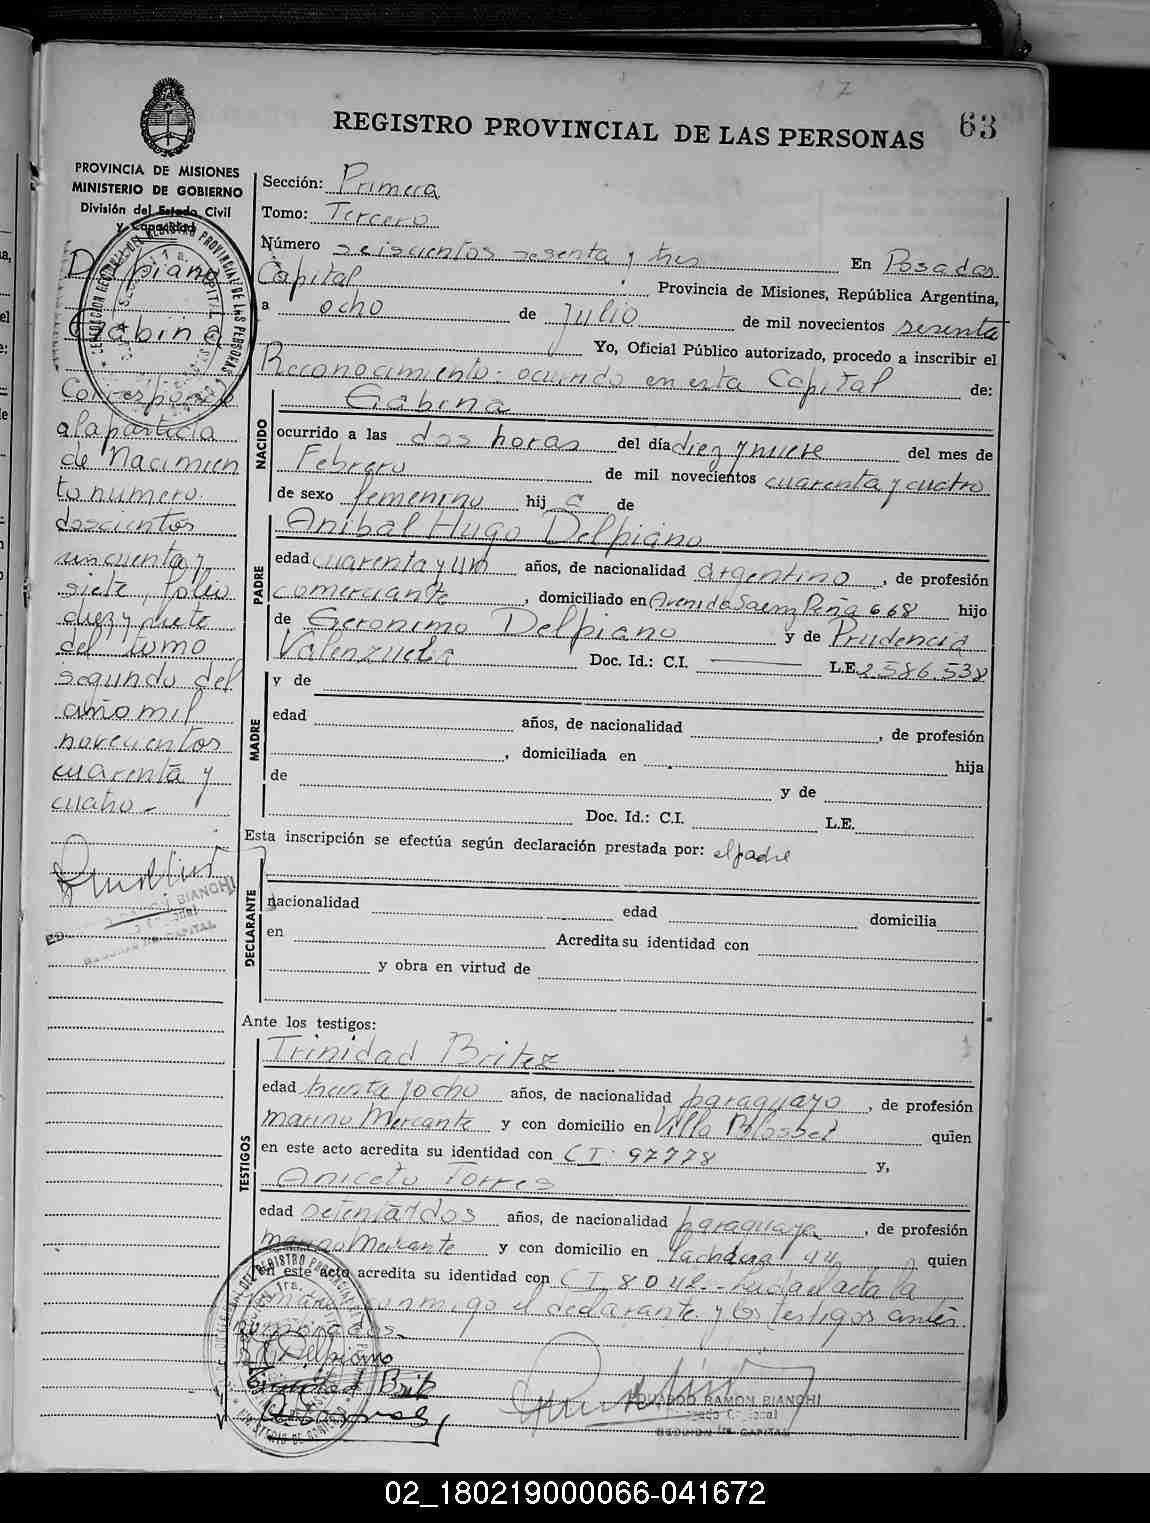 17
REGISTRO PROVINCIAL DE LAS PERSONAS 63
PROVINCIA DE MISIONES
MINISTERIO DE GOBIERNO
División del Estado Civil
y Capacidad
Delpiano
Gabina
Corresponde
a la partida
de Nacimien
to numero
doscientos
cincuenta y
siete, folio
diez y siete
del tomo
segundo del
año mil
novecientos
cuarenta y
cuatro.-
Sección: Primera
Tomo: Tercero
Número seiscientos sesenta y tres En Posadas
Capital Provincia de Misiones, República Argentina,
a ocho de Julio de mil novecientos sesenta
Yo, Oficial Público autorizado, procedo a inscribir el
Reconocimiento: ocurrido en esta Capital de:
NACIDO
Gabina
ocurrido a las dos horas del día diez y nueve del mes de
Febrero de mil novecientos cuarenta y cuatro
de sexo femenino hij a de
PADRE
Anibal Hugo Delpiano
edad cuarenta y un años, de nacionalidad argentino, de profesión
comerciante, domiciliado en Avenida Saenz Peña 668 hijo
de Geronimo Delpiano y de Prudencia
Valenzuela Doc. Id.: C.I. L.E. 2.586.538
MADRE
y de
edad años, de nacionalidad , de profesión
, domiciliada en hija
de y de
Doc. Id.: C.I. L.E.
Esta inscripción se efectúa según declaración prestada por: el padre
DECLARANTE
nacionalidad edad domicilia
en Acredita su identidad con
y obra en virtud de
Ante los testigos:
TESTIGOS
Trinidad Britez
edad treinta y ocho años, de nacionalidad paraguayo, de profesión
marino Mercante y con domicilio en Villa Blosset quien
en este acto acredita su identidad con C I: 97778 y,
Aniceto Torres
edad setenta y dos años, de nacionalidad paraguaya, de profesión
marino Mercante y con domicilio en 44 quien
en este acto acredita su identidad con C I 8042.- leida el acta la
conmigo el declarante y los testigos antes
nombrados.
Delpiano
Trinidad Brit
EDUARDO RAMON BIANCHI
SECCION 1ra. CAPITAL
02_180219000066-041672